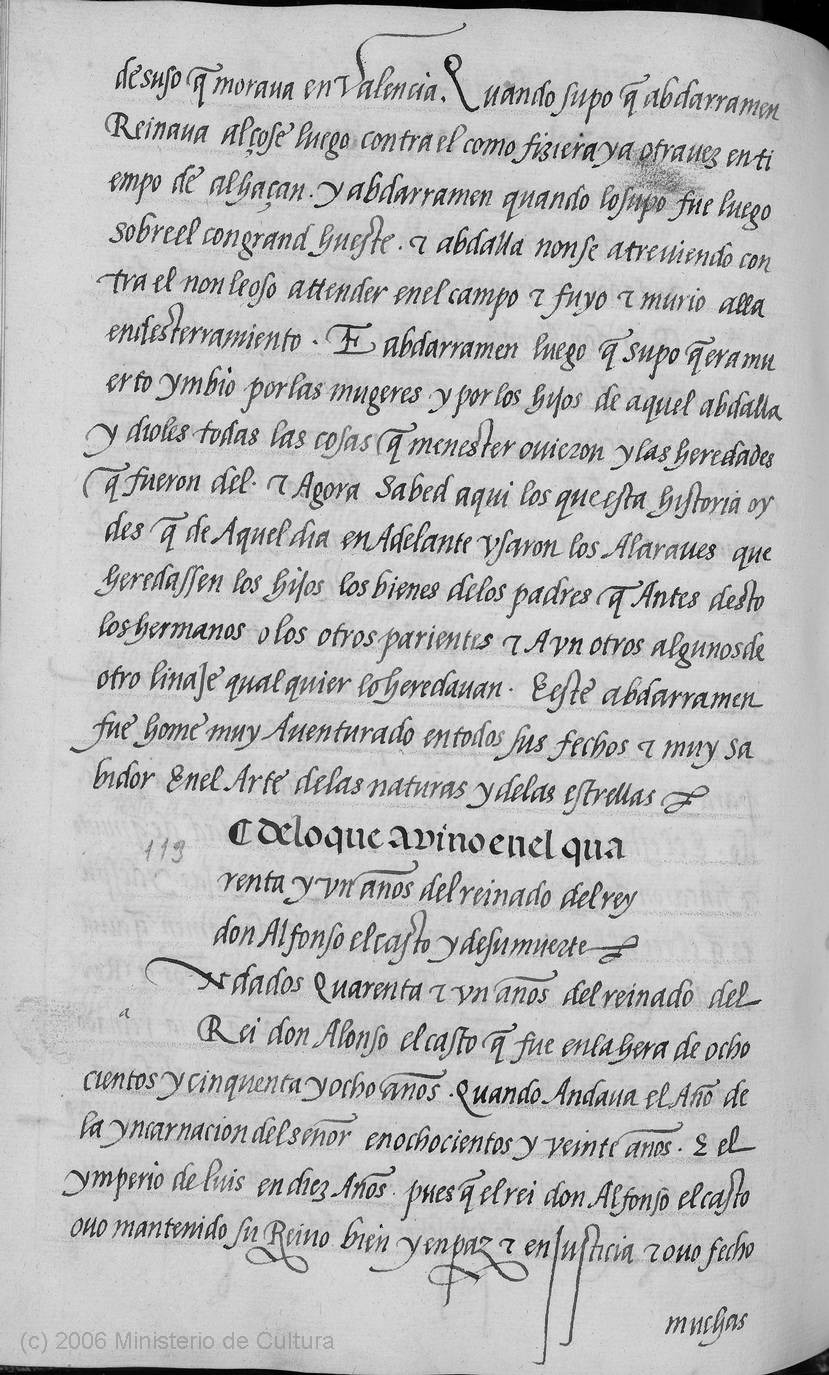 desuso q̃ morava en valencia. Quando supo q̃ abdarramen
Reinava alçose luego contra el como fiziera ya otravez en ti
empo de alhaçan. y abdarramen quando lo supo fue luego
sobreel congrand hueste. τ abdalla nonse atreviendo con
tra el non leoso attender enel campo τ fuyo τ murio alla
endesterramiento. E abdarramen luego q̃ supo q̃ era mu
erto ymbio por las mugeres y por los hijos de aquel abdalla
y dioles todas las cosas q̃ menester ovieron y las heredades
q̃ fueron del. τ Agora Sabed aqui los que esta historia oy
des q̃ de Aquel dia en Adelante vsaron los Alaraves que
heredassen los hijos los bienes delos padres q̃ Antes desto
los hermanos o los otros parientes τ Avn otros algunos de
otro linaje qual quier lo heredavan. E este abdarramen
fue home muy Aventurado en todos sus fechos τ muy sa
bidor Enel Arte delas naturas y delas estrellas
¶ deloque avino enel qua
119
renta y vn años del reinado del rey
don Alfonso el casto y desumuerte
Ndados Quarenta τ vn años del reinado del
a
Rei don Alonso el casto q̃ fue enla hera de ocho
cientos y cinquenta y ocho años. Quando Andava el Año de
la yncarnacion del señor en ochocientos y veinte años. E el
ymperio de luis en diez Años. pues q̃ el rei don Alfonso el casto
ovo mantenido su Reino bien y en paz τ en justicia τ ovo fecho
muchas
(c) 2006 Ministerio de Cultura